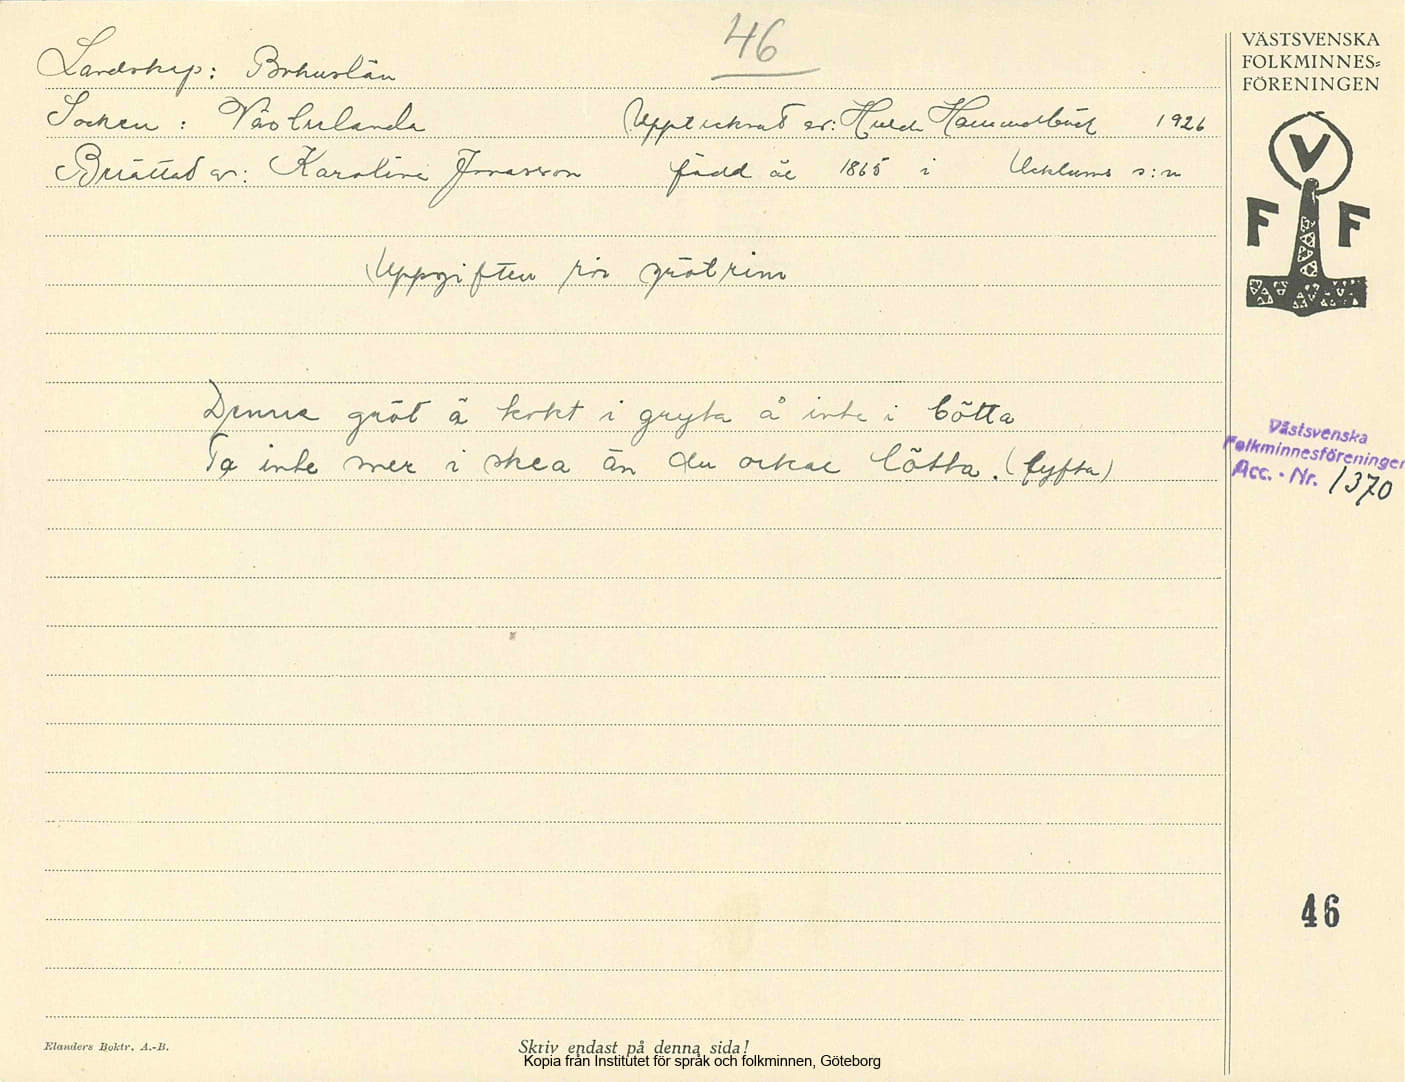 46
VÄSTSVENSKA
FOLKMINNES=
FÖRENINGEN
Landskap: Bohuslän
Socken: Västerlanda Upptecknat av: Hulda Hammarbäck 1926
Berättat av: Karolina Jonasson född år 1865 i Ucklums s:n
V
F F
Uppgiften rör grötrim
Denne gröt ä kokt i gryta å inte i bötta
Ta inte mer i skea än du orkar lötta. (lyfta)
Västsvenska
Folkminnesföreningen
Acc. - Nr. 1370
46
Elanders Boktr. A.-B.
Skriv endast på denna sida!
Kopia från Institutet för språk och folkminnen, Göteborg